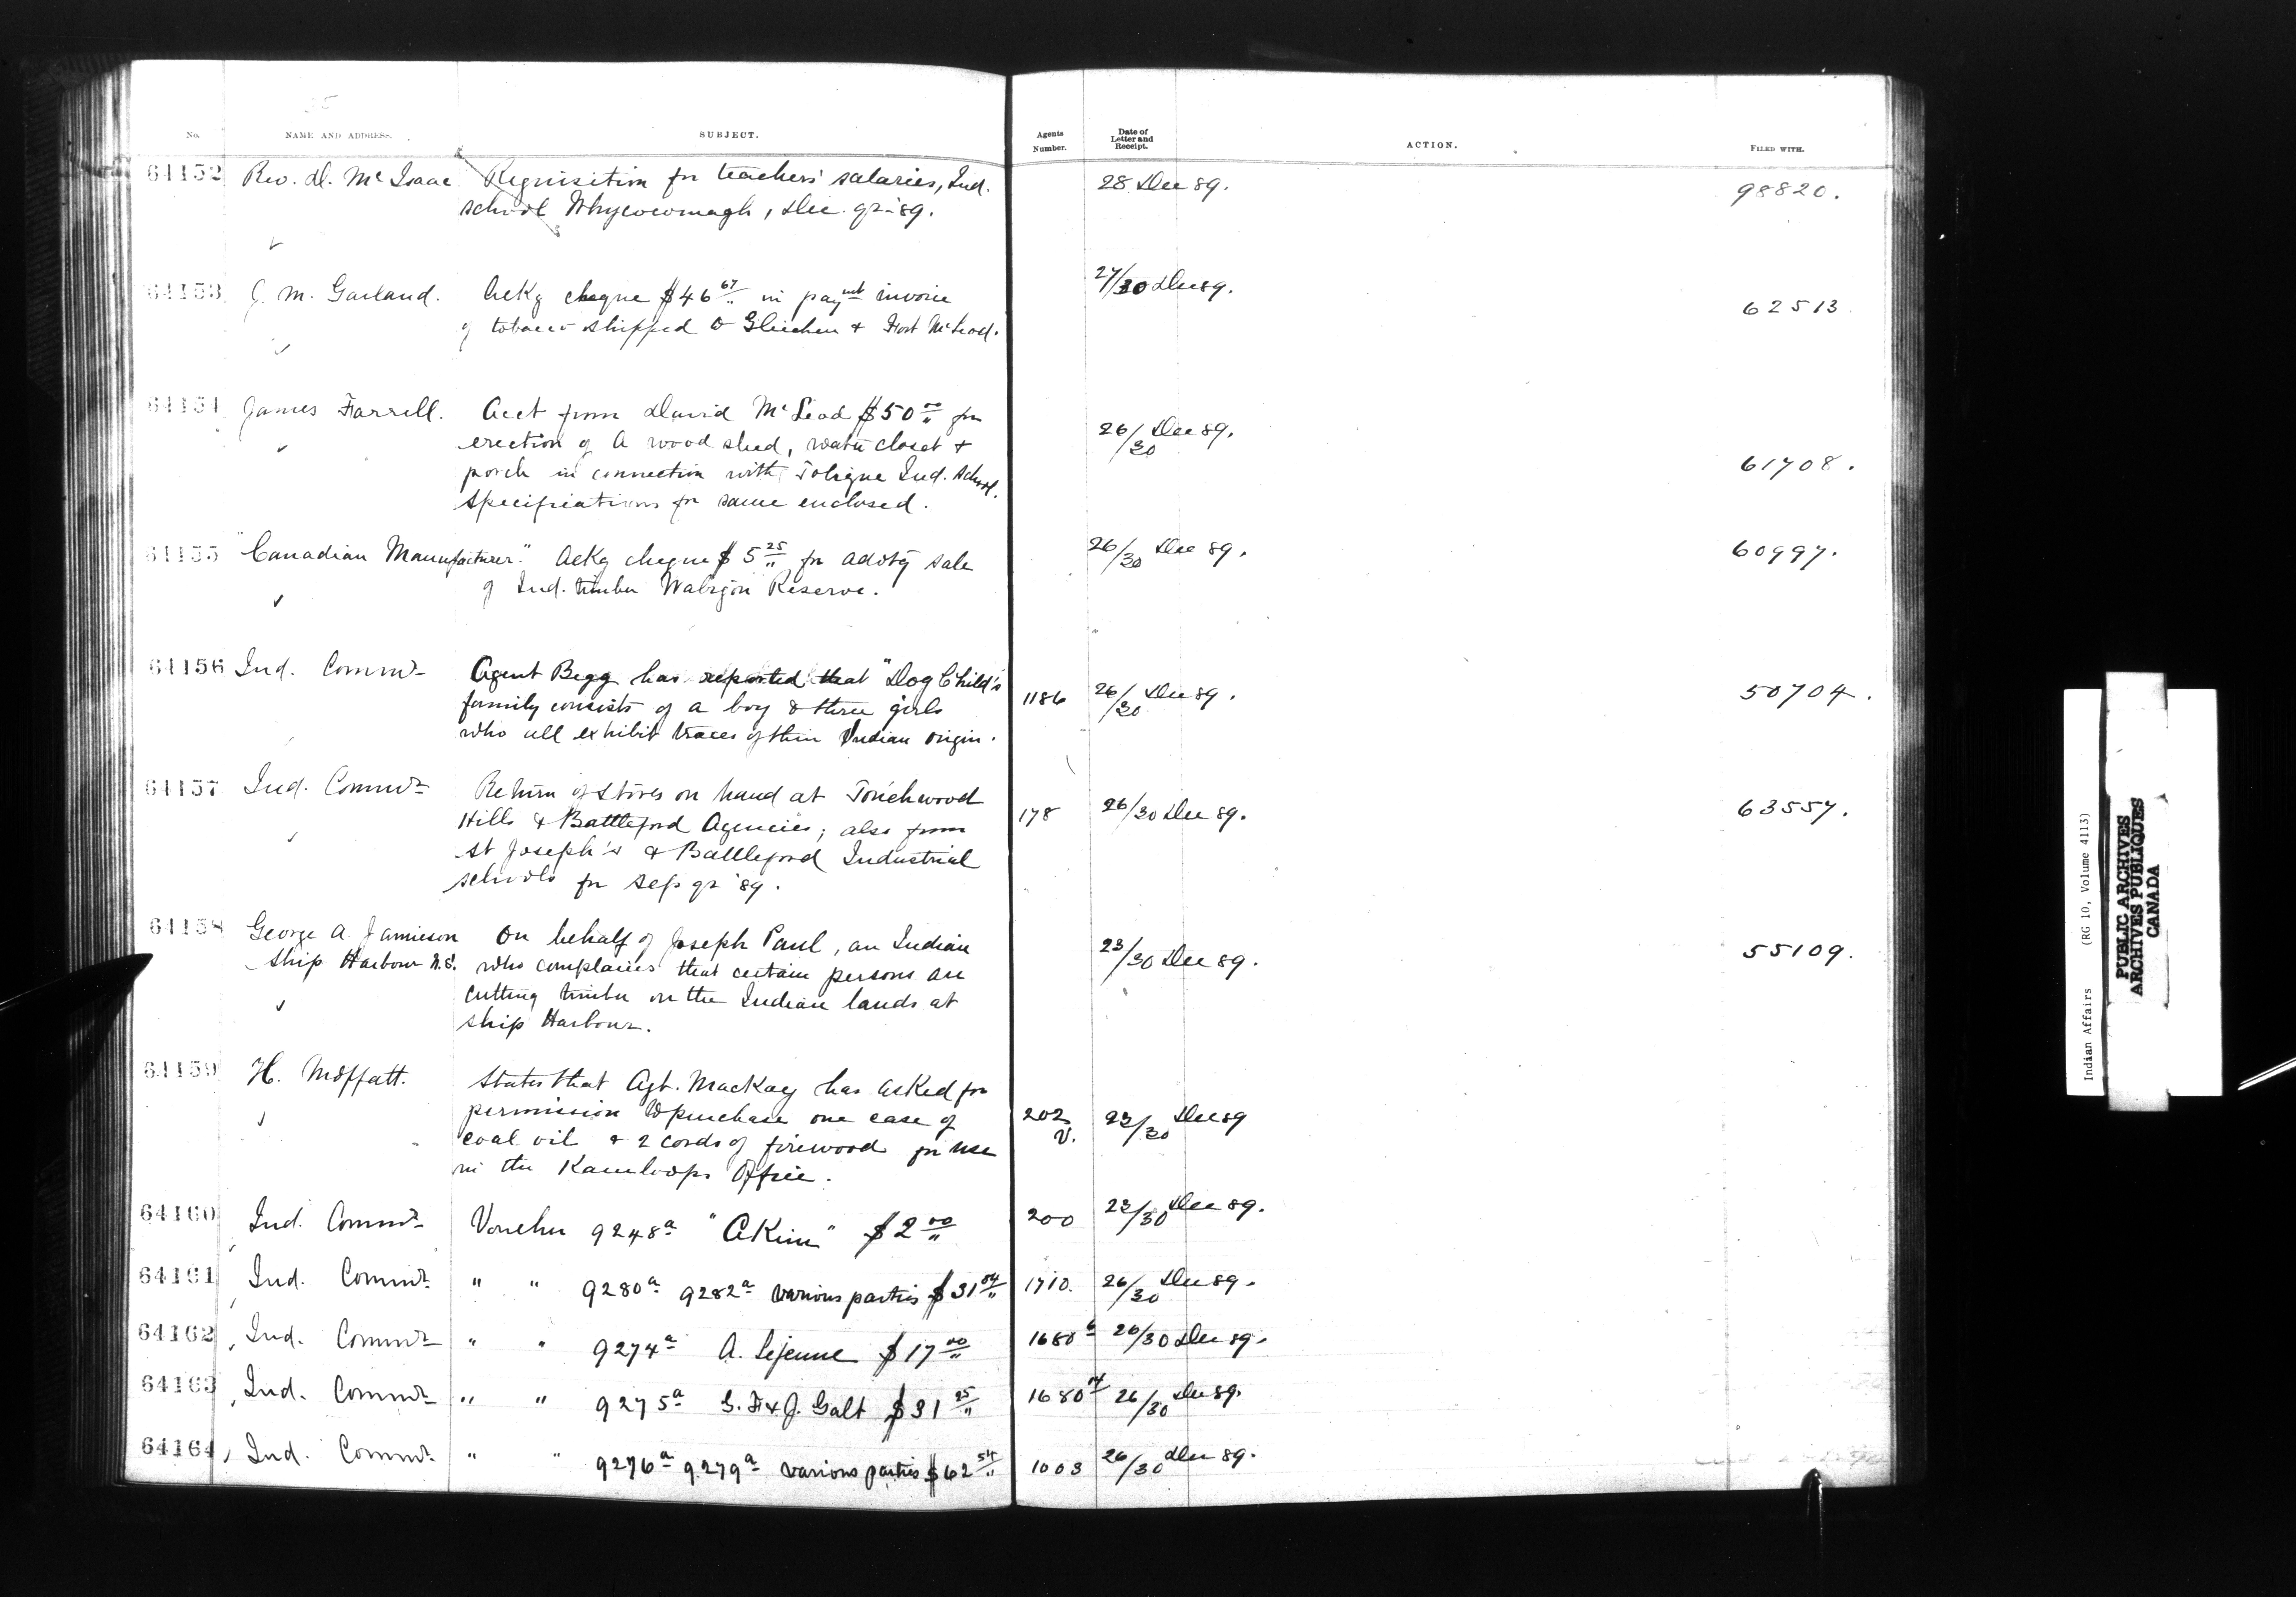 No. NAME AND ADDRESS. SUBJECT. Agents Number. Date of Letter and Receipt. ACTION. FILED WITH.
64152 Rev. D. McIsaac Requisition for teachers' salaries, Ind. 28 Dec 89. 98820.
school Whycocomagh, Dec. qr. '89.
64153 J. M. Garland. Ackg cheque $46 67/" in paymt invoice 27/30 Dec 89. 62513.
of tobacco shipped to Gleichen & Fort McLeod.
64154 James Farrell. Acct from David McLeod $50 00/" for 26/30 Dec 89. 61708.
erection of a wood shed, water closet &
porch in connection with Tobique Ind. School.
Specifications for same enclosed.
64155 "Canadian Manufacturer." Ackg cheque $5 25/" for advtg sale 26/30 Dec 89. 60997.
of Ind. timber Wabigon Reserve.
64156 Ind. Commr Agent Begg has reported that "Dog Child's 1186 26/30 Dec 89. 50704.
family consists of a boy & three girls
who all exhibit traces of their Indian origin.
64157 Ind. Commr Return of stores on hand at Touchwood 178 26/30 Dec 89. 63557.
Hills & Battleford Agencies; also from
St Joseph's & Battleford Industrial
schools for Sep qr '89.
64158 George A Jamieson On behalf of Joseph Paul, an Indian 23/30 Dec 89. 55109.
Ship Harbour N.S. who complains that certain persons are
cutting timber on the Indian lands at
Ship Harbour.
64159 H. Moffatt. States that Agt. MacKay has asked for
permission to purchase one case of 202 V. 23/30 Dec 89
coal oil & 2 cords of firewood for use
in the Kamloops Office.
64160 Ind. Commr Voucher 9248a "Akim" $2 00/" 200 23/30 Dec 89.
64161 Ind. Commr " " 9280a 9282a various parties $31 04/" 1710. 26/30 Dec 89.
64162 Ind. Commr " " 9274a A. Lejeune $17 00/" 1680 26/30 Dec 89.
64163 Ind. Commr " " 9275a G. F. & J. Galt $31 25/" 1680 26/30 Dec 89.
64164 Ind. Commr " " 9276a 9279a various parties $62 54/" 1003 26/30 Dec 89.
Indian Affairs (RG 10, Volume 4113)
PUBLIC ARCHIVES
ARCHIVES PUBLIQUES
CANADA